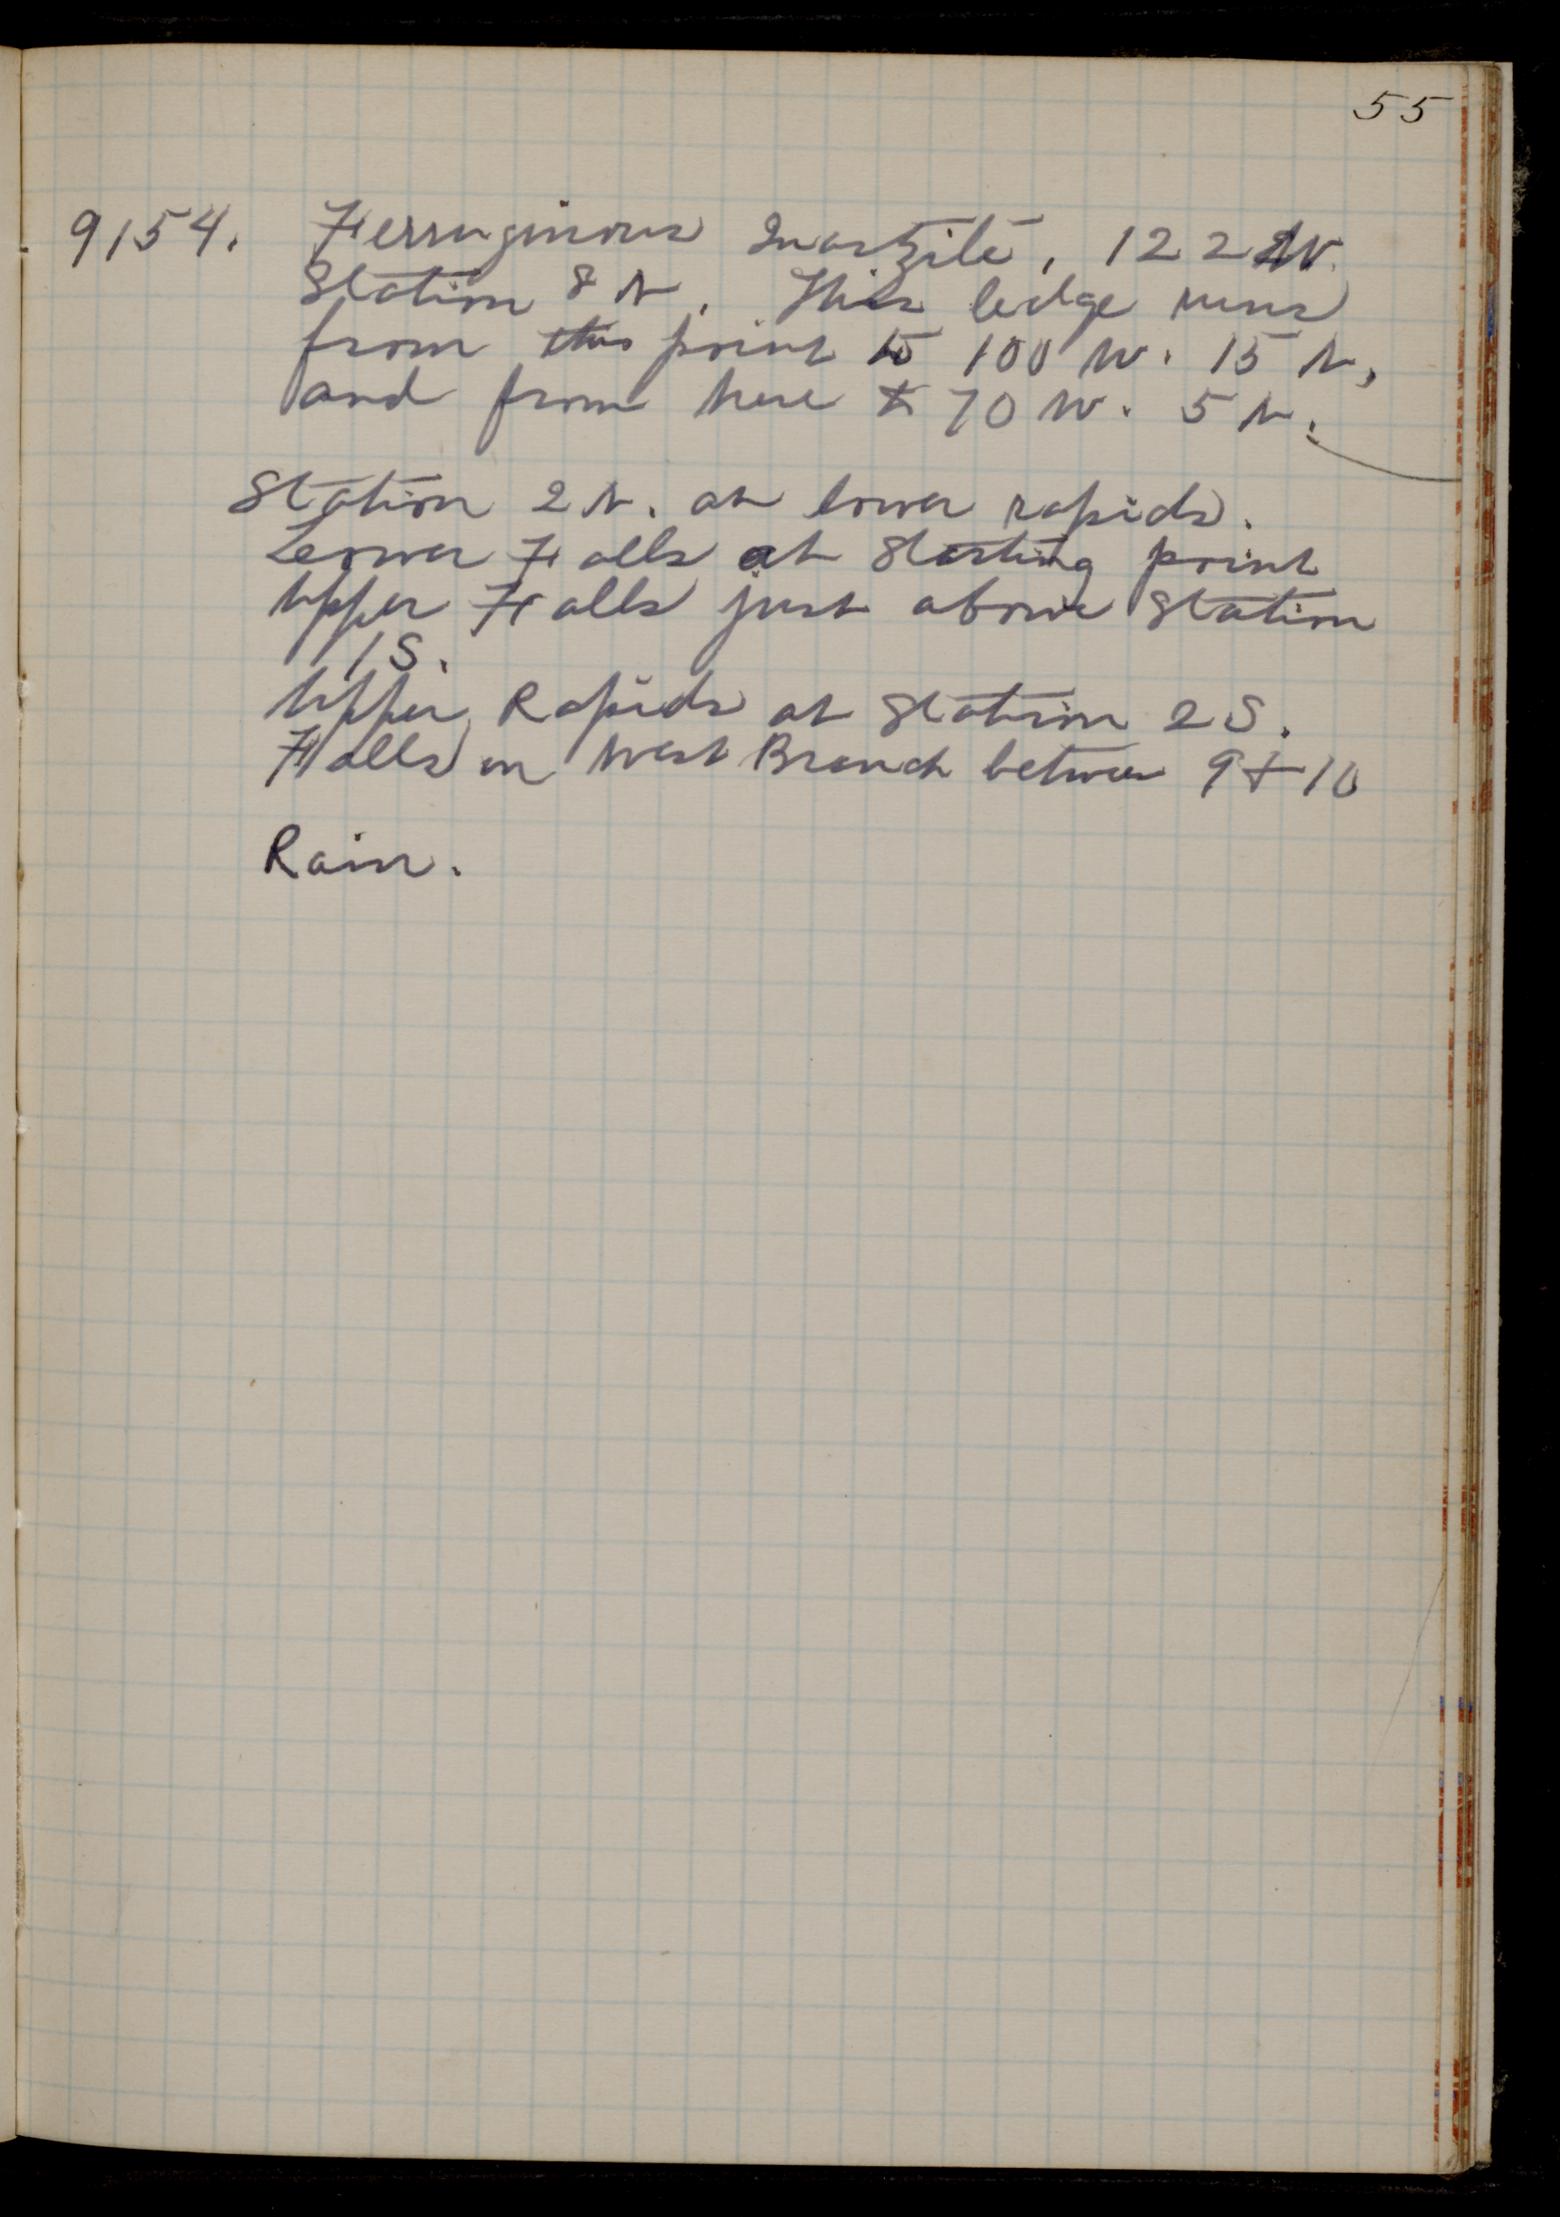 55
9154. Ferruginous Quartzite, 122 W.
Station 8 N. This ledge runs
from this point to 100 W. 15 N,
and from here to 70 W. 5 N.
Station 2 N. at lower rapids.
Lower Falls at Starting point
Upper Falls just above Station
1 S.
Upper Rapids at Station 2 S.
Falls on West Branch between 9 + 10
Rain.